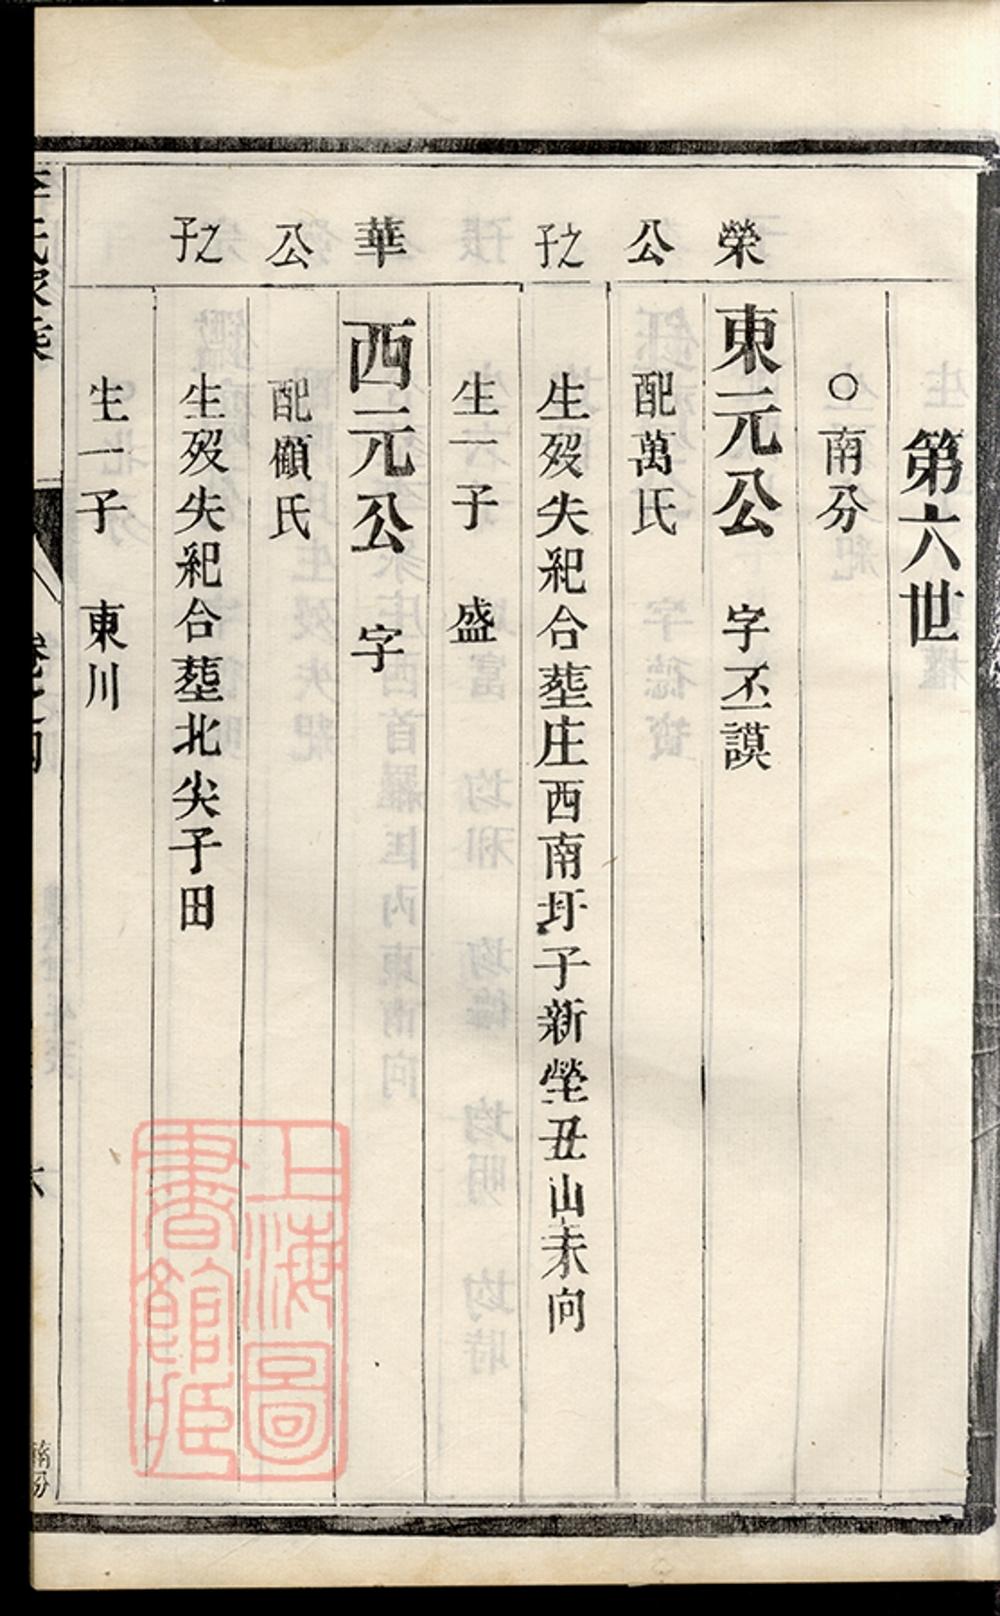 第六世
○南分
榮公之子
東元公 字丕謨
配萬氏
生歿失紀合塟庄西南圩子新塋丑山未向
生一子 盛
華公之子
西元公 字
配顧氏
生歿失紀合塟北尖子田
生一子 東川
上海圖書館藏
南分